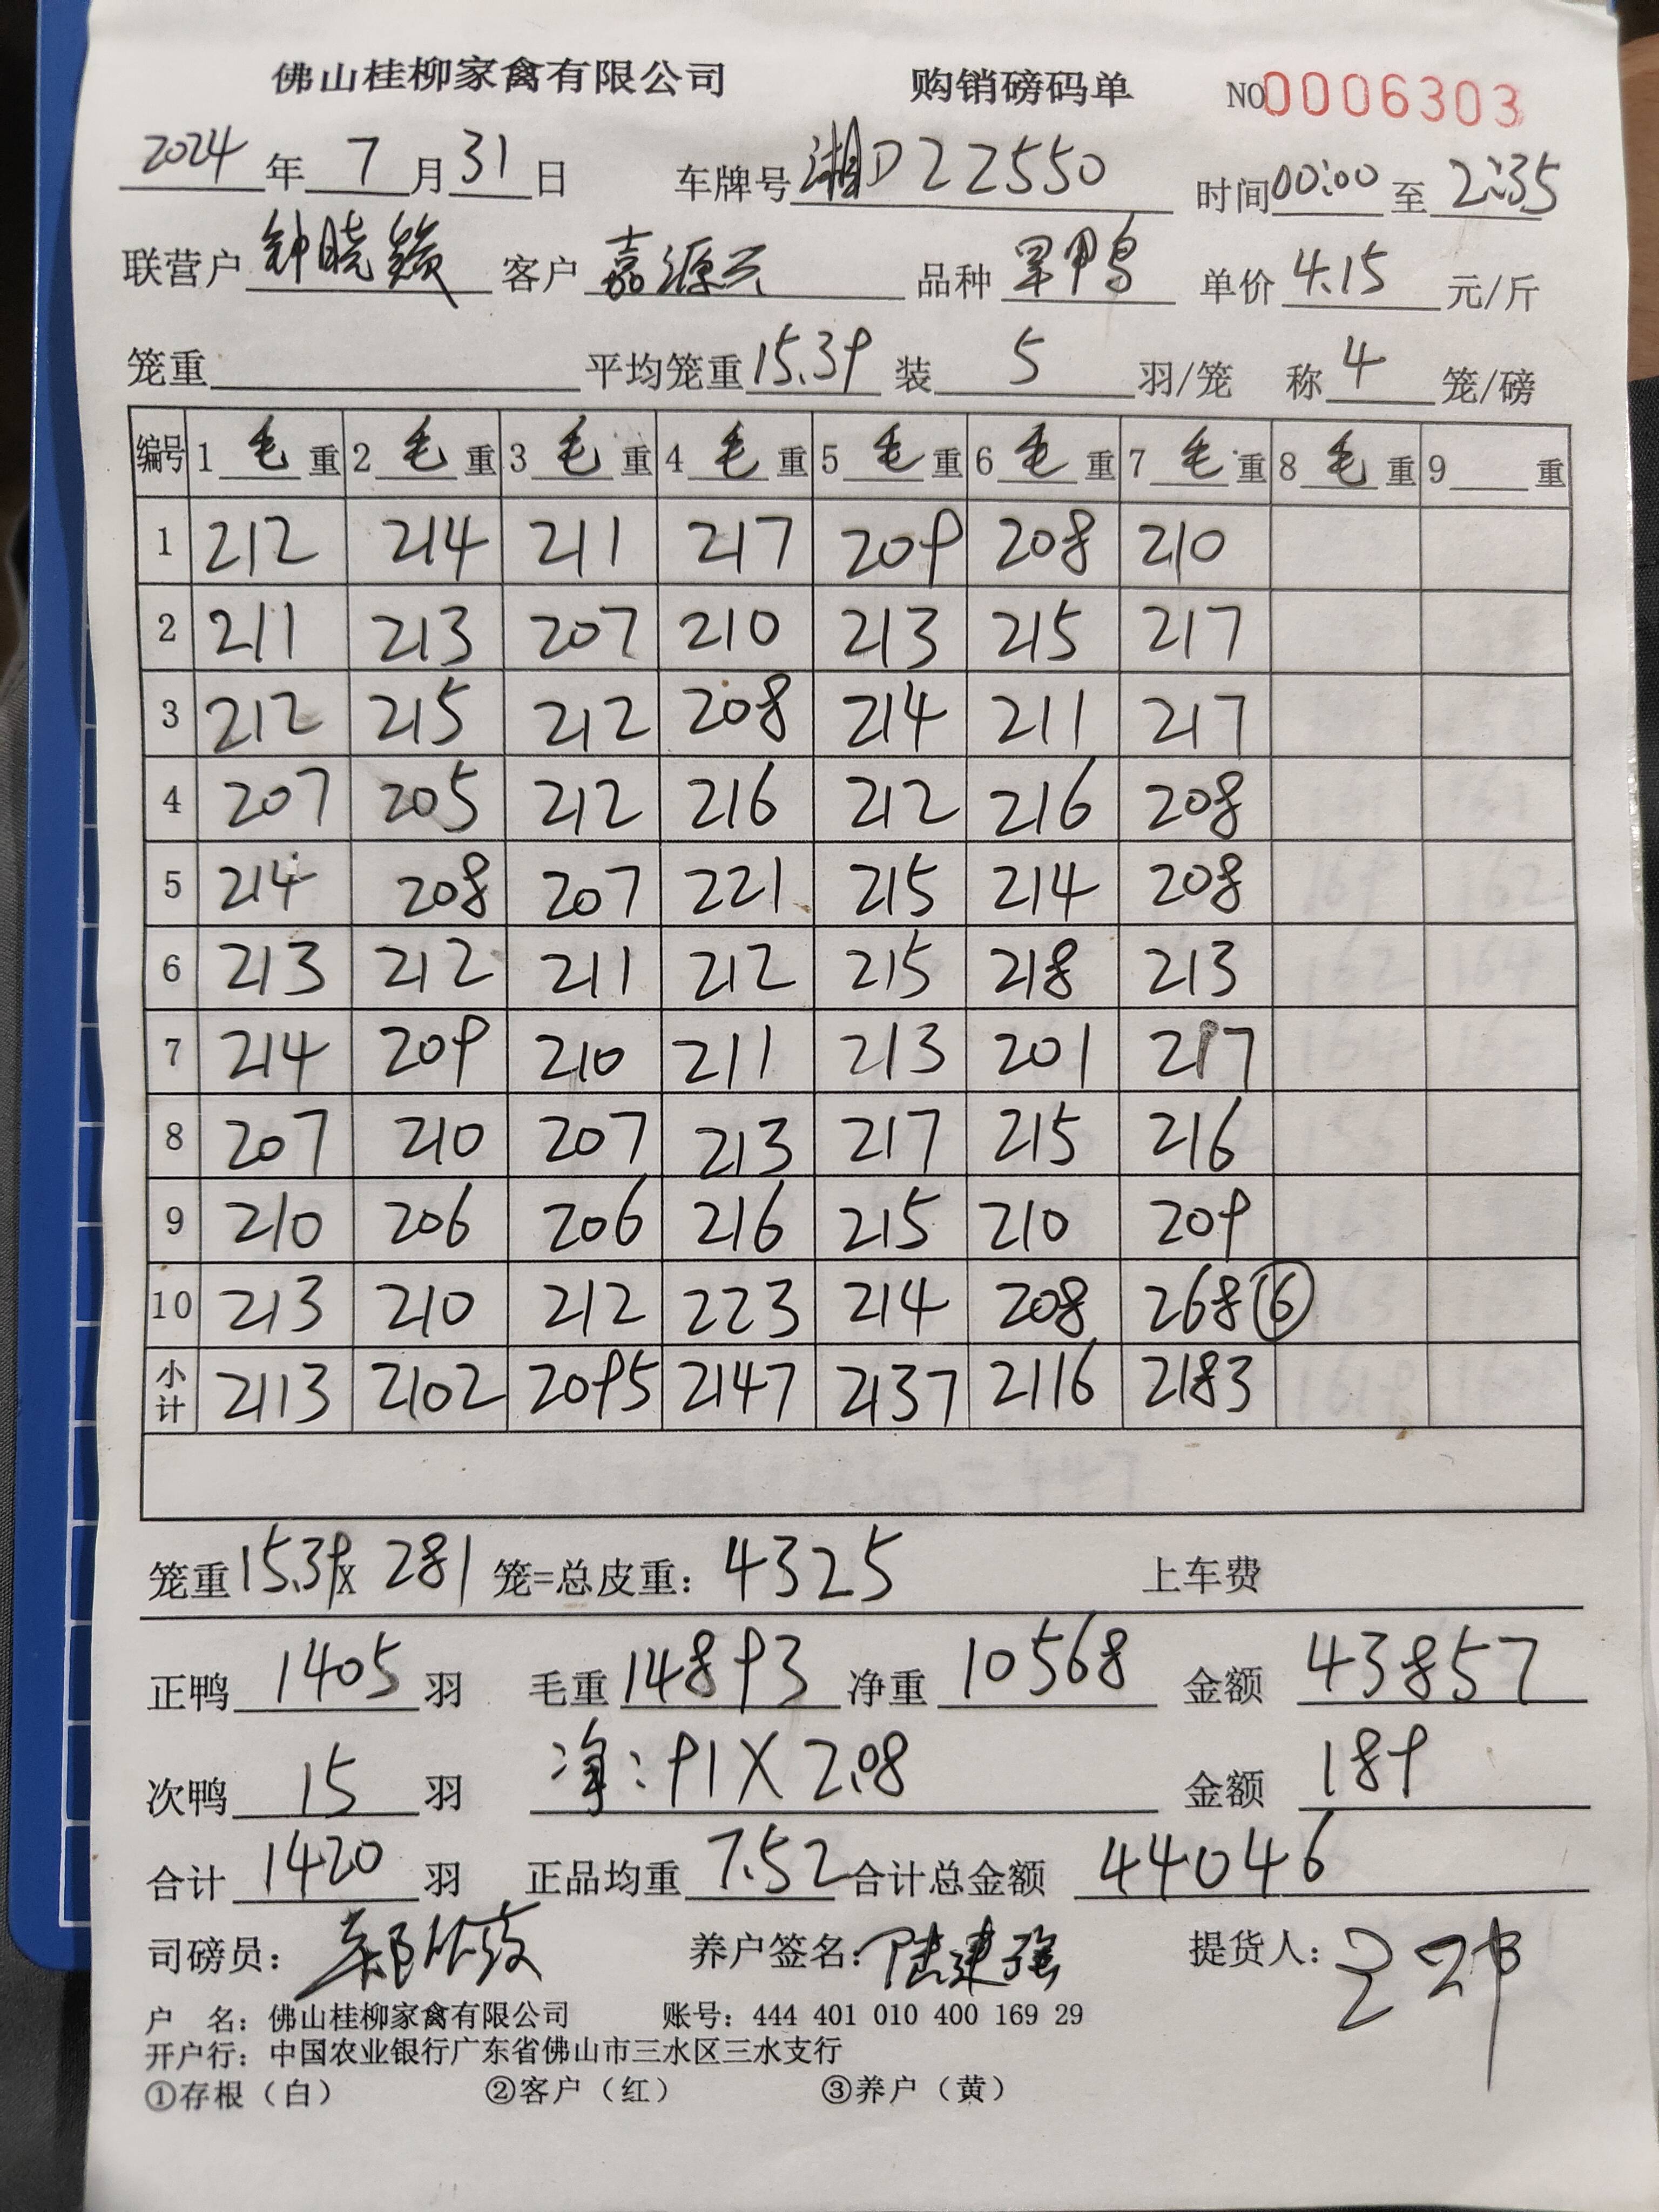 佛山桂柳家禽有限公司 购销磅码单 NO0006303
2024年 7月31日 车牌号 湘D22550 时间00:00至2:35
联营户 钟晓 客户 嘉源兴 品种 旱鸭 单价4.15元/斤
笼重 平均笼重15.39 装 5 羽/笼 称 4 笼/磅
编号 1 毛 重 2 毛 重 3 毛 重 4 毛 重 5 毛 重 6 毛 重 7 毛 重 8 毛 重 9 重
1 212 214 211 217 209 208 210
2 211 213 207 210 213 215 217
3 212 215 212 208 214 211 217
4 207 205 212 216 212 216 208
5 214 208 207 221 215 214 208
6 213 212 211 212 215 218 213
7 214 209 210 211 213 201 217
8 207 210 207 213 217 215 216
9 210 206 206 216 215 210 209
10 213 210 212 223 214 208 268⑥
小计 2113 2102 2095 2147 2137 2116 2183
笼重15.39x 281 笼=总皮重：4325 上车费
正鸭 1405 羽 毛重14893 净重 10568 金额 43857
次鸭 15 羽 净：91X2.08 金额 189
合计 1420 羽 正品均重 7.52 合计总金额 44046
司磅员： 养户签名：陆建强 提货人：
户 名：佛山桂柳家禽有限公司 账号：444 401 010 400 169 29
开户行：中国农业银行广东省佛山市三水区三水支行
①存根（白） ②客户（红） ③养户（黄）